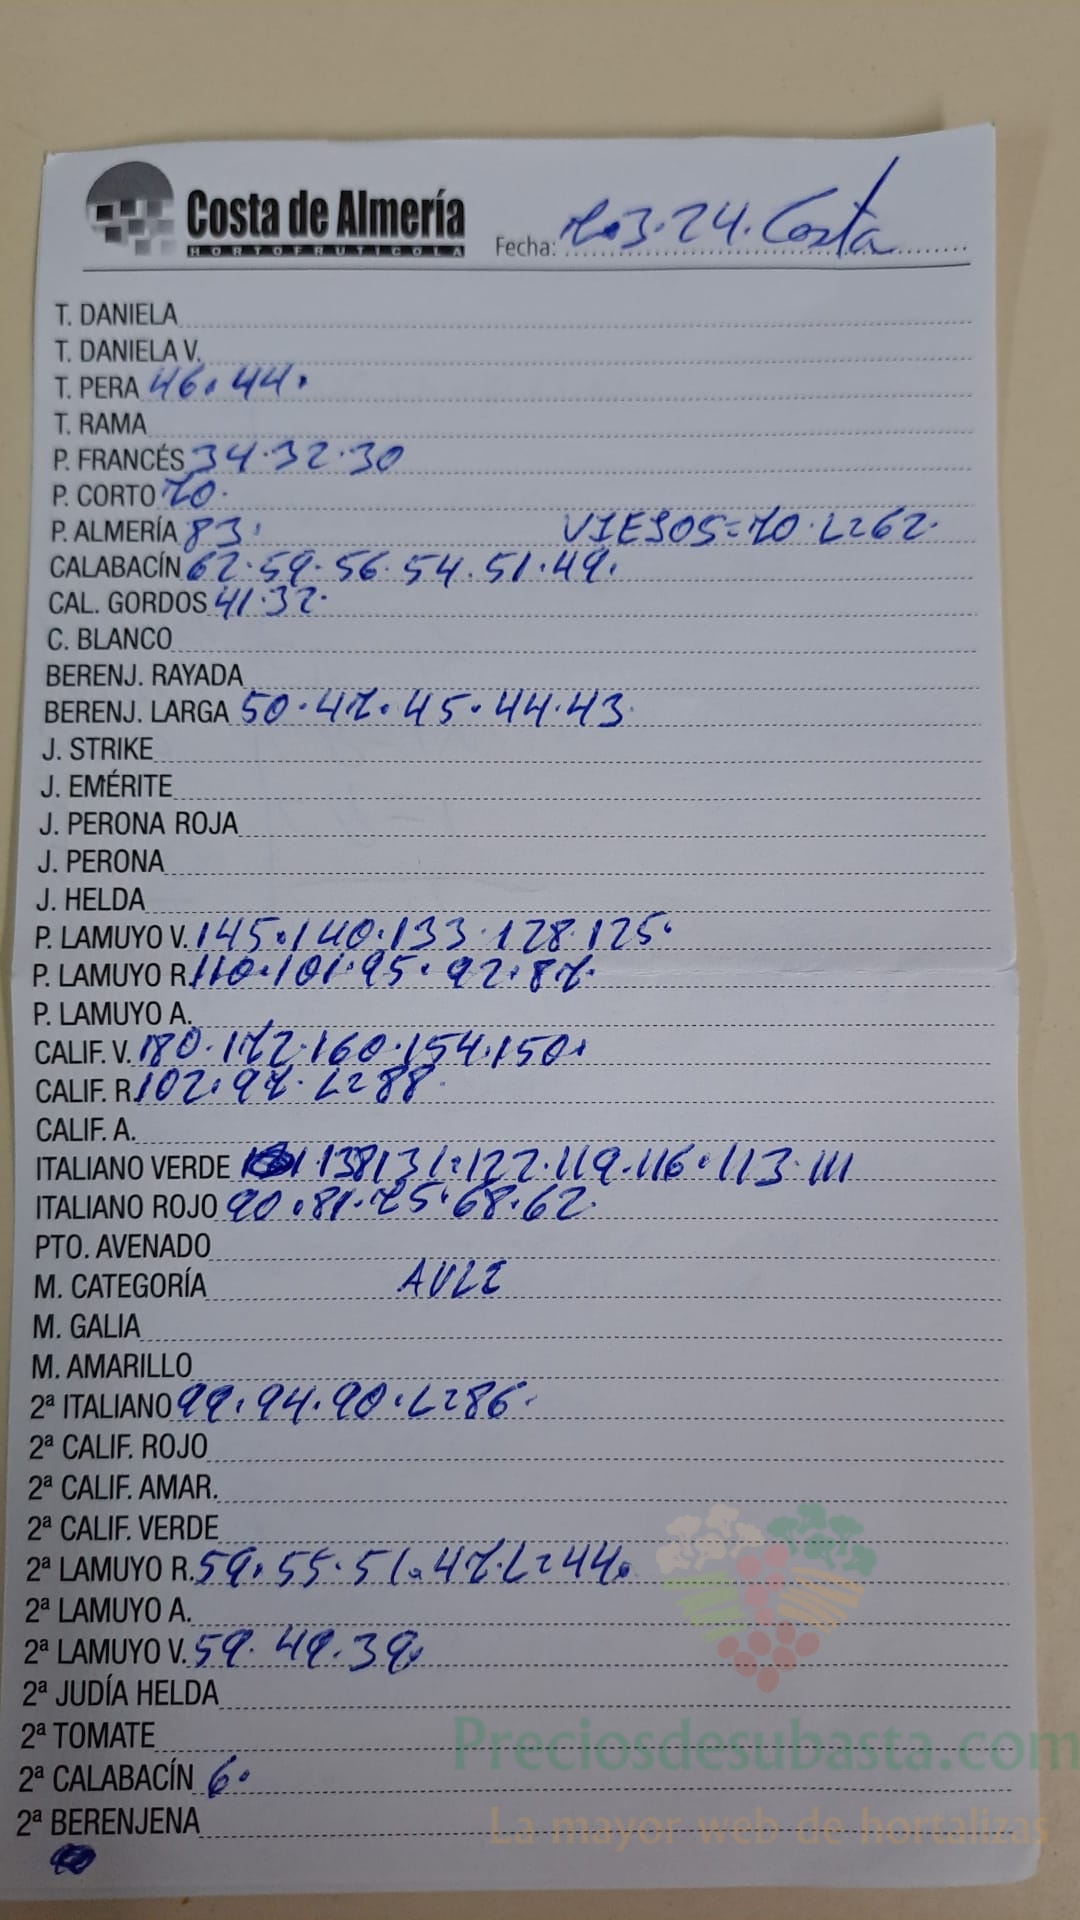 Costa de Almería
HORTOFRUTICOLA
Fecha: 7.3.24. Costa
T. DANIELA
T. DANIELA V.
T. PERA 46. 44.
T. RAMA
P. FRANCÉS 34.32.30
P. CORTO 70.
P. ALMERÍA 83. VIEJOS=70.L=62.
CALABACÍN 62.59.56.54.51.49.
CAL. GORDOS 41.32.
C. BLANCO
BERENJ. RAYADA
BERENJ. LARGA 50.47.45.44.43.
J. STRIKE
J. EMÉRITE
J. PERONA ROJA
J. PERONA
J. HELDA
P. LAMUYO V. 145.140.133.128.125.
P. LAMUYO R. 110.101.95.92.87.
P. LAMUYO A.
CALIF. V. 180.172.160.154.150.
CALIF. R. 102.97.L=88.
CALIF. A.
ITALIANO VERDE .138131.122.119.116.113.111
ITALIANO ROJO 90.81.75.68.62.
PTO. AVENADO
M. CATEGORÍA
M. GALIA
M. AMARILLO
2ª ITALIANO 99.94.90.L=86.
2ª CALIF. ROJO
2ª CALIF. AMAR.
2ª CALIF. VERDE
2ª LAMUYO R. 59.55.51.47.L=44.
2ª LAMUYO A.
2ª LAMUYO V. 59.49.39.
2ª JUDÍA HELDA
2ª TOMATE
Preciosdesubasta.com
2ª CALABACÍN 6.
2ª BERENJENA
La mayor web de hortalizas